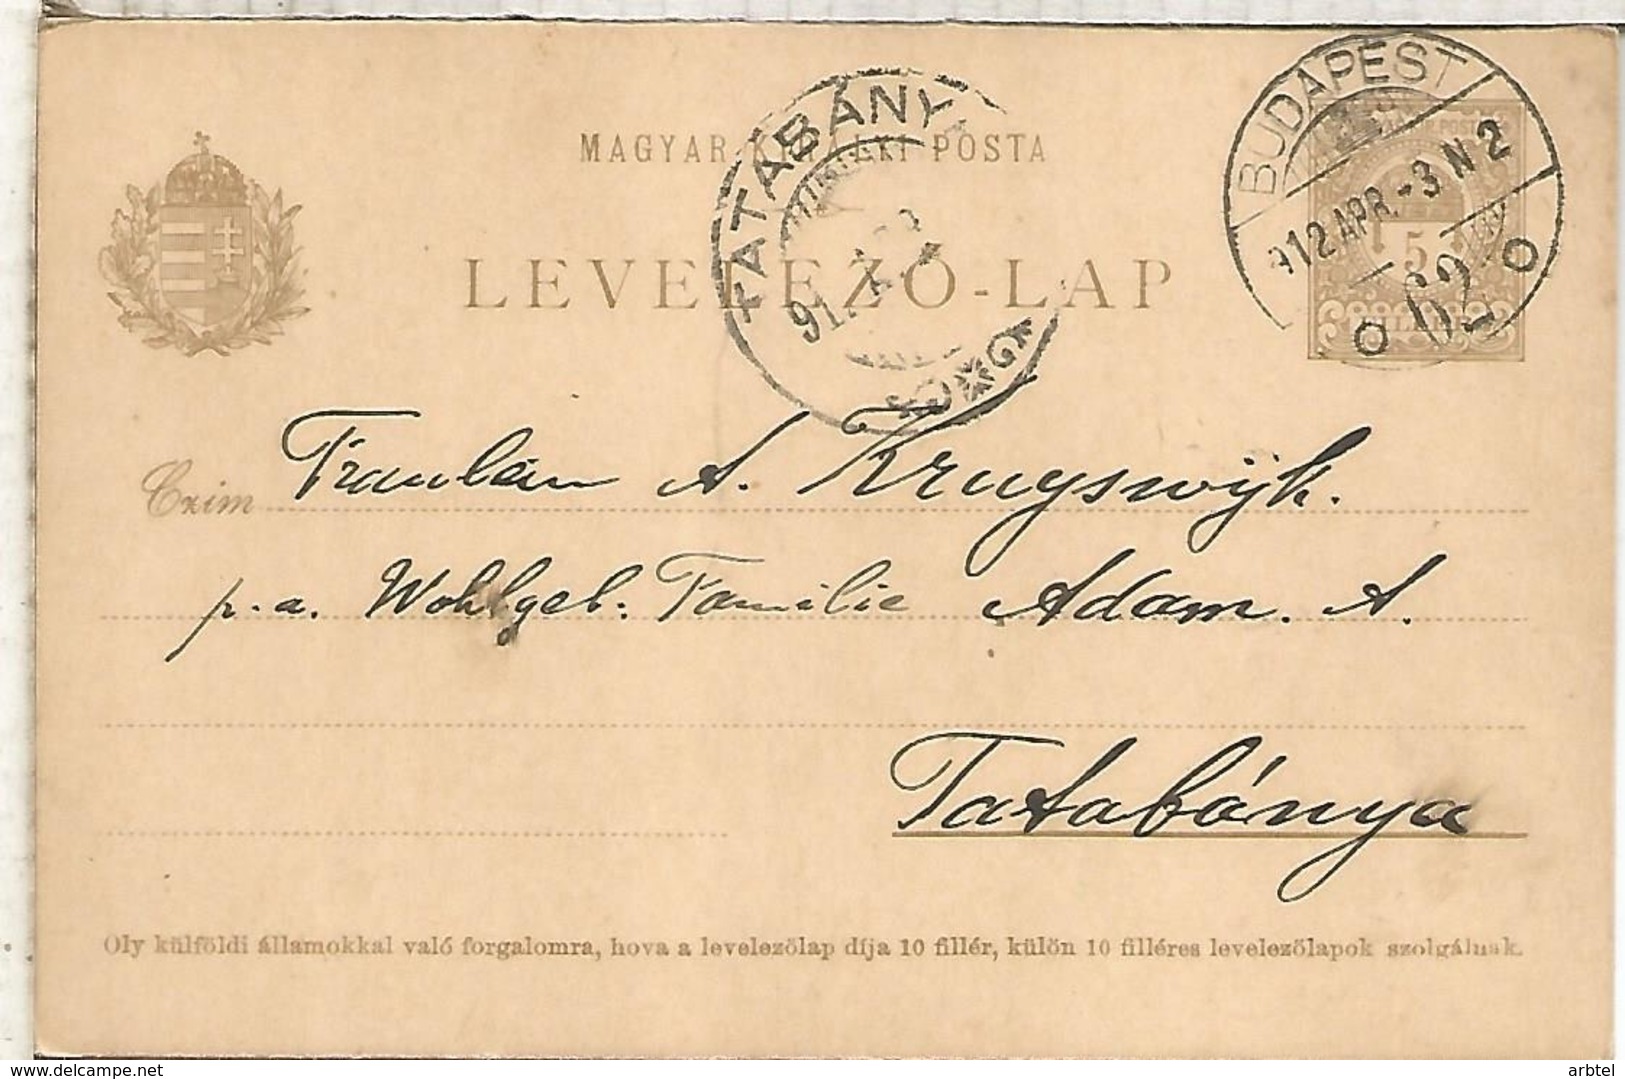 BUDAPEST
912 APR.-3 N 2
62
TATABÁNY
MAGYAR KIRÁLYI POSTA
LEVELEZŐ-LAP
5
FILLÉR
Czim Fraulein A. Kruyswijk.
p.a. Wohlgeb. Familie Adam. A.
Tatabánya
Oly külföldi államokkal való forgalomra, hova a levelezőlap díja 10 fillér, külön 10 filléres levelezőlapok szolgálnak.
delcampe.net
arbtel